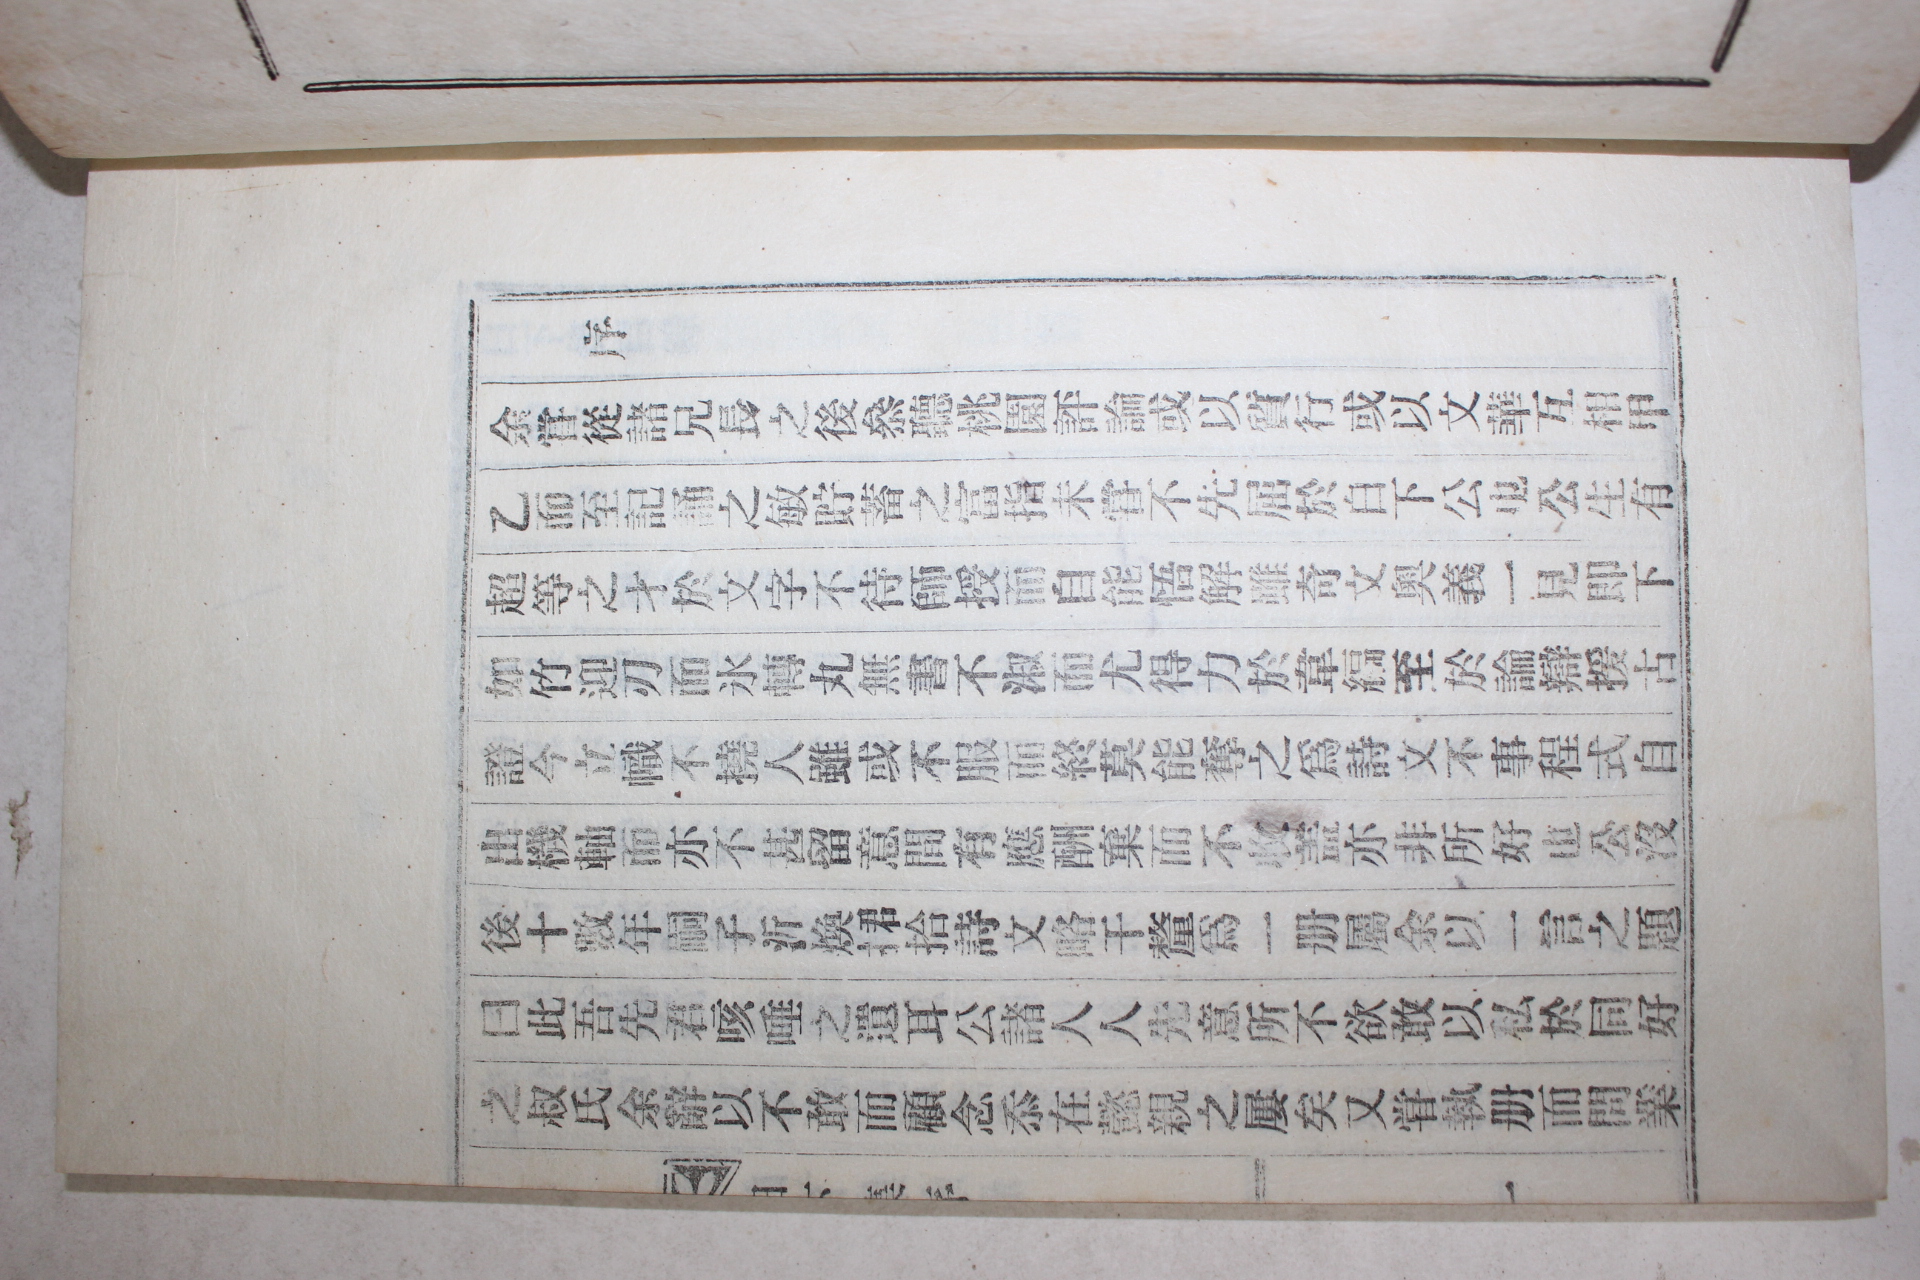 序
余嘗從諸兄長之後叅聽桃園評論或以實行或以文雅互相甲
乙而至記誦之敏貯蓄之富指未嘗不先屈於白下公也公生有
超等之才於文字不待師授而自能悟解雖奇文奧義一見卽下
如竹迎刃而氷轉丸無書不淑而尤得力於韋編至於論辯援古
證今立幟不撓人雖或不服而終莫能奪之爲詩文不事程式自
出機軸而亦不甚留意間有應酬棄而不收盖亦非所好也公沒
後十數年嗣子沂煥捃拾詩文略干釐爲一册屬余以一言之題
曰此吾先君咳唾之遺耳公諸人人先意所不欲敢以私於同好
之叔氏余辭以不敢而顧念忝在懿親之屢矣又嘗執册而問業